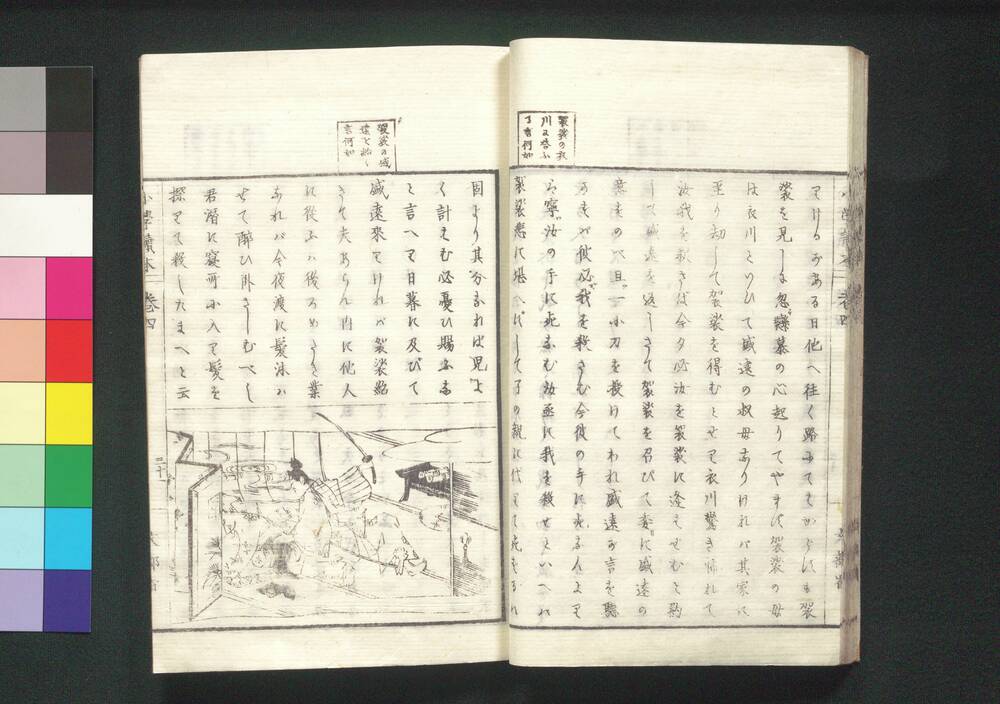 袈裟の衣
川に答ふ
る言何如
てけるがある日他へ往く路にてはからずも袈
裟を見しよ忽戀慕の心起りてやまず袈裟の母
は衣川といひて盛遠の叔母なりければ其家に
至り劫して袈裟を得むとせり衣川驚き怖れて
今夕必汝を袈裟に逢はせむと約
盛遠を返しさて袈裟を召びて委に盛遠の
意をのべ且一小刀を授けてわれ盛遠が言を聽
かずば彼必我を殺さむ今彼の手に死なんより
は寧汝の手に死なむ汝亟に我を殺せといへば
袈裟悲に堪へずして子の親に代りて死するは
袈裟の盛
遠を紿く
言何如
固より其分なれば兒よ
く計はむ必憂ひ賜ふな
と言へり日暮に及びて
盛遠來りければ袈裟紿
きて夫あらん内に他人
に從ふハ後ろめたき業
なれバ今夜渡に髮沐ハ
せて醉ひ臥さしむべし
君潜に寢所に入り髮を
探りて殺したまへと云
小學讀本 卷四
三十一